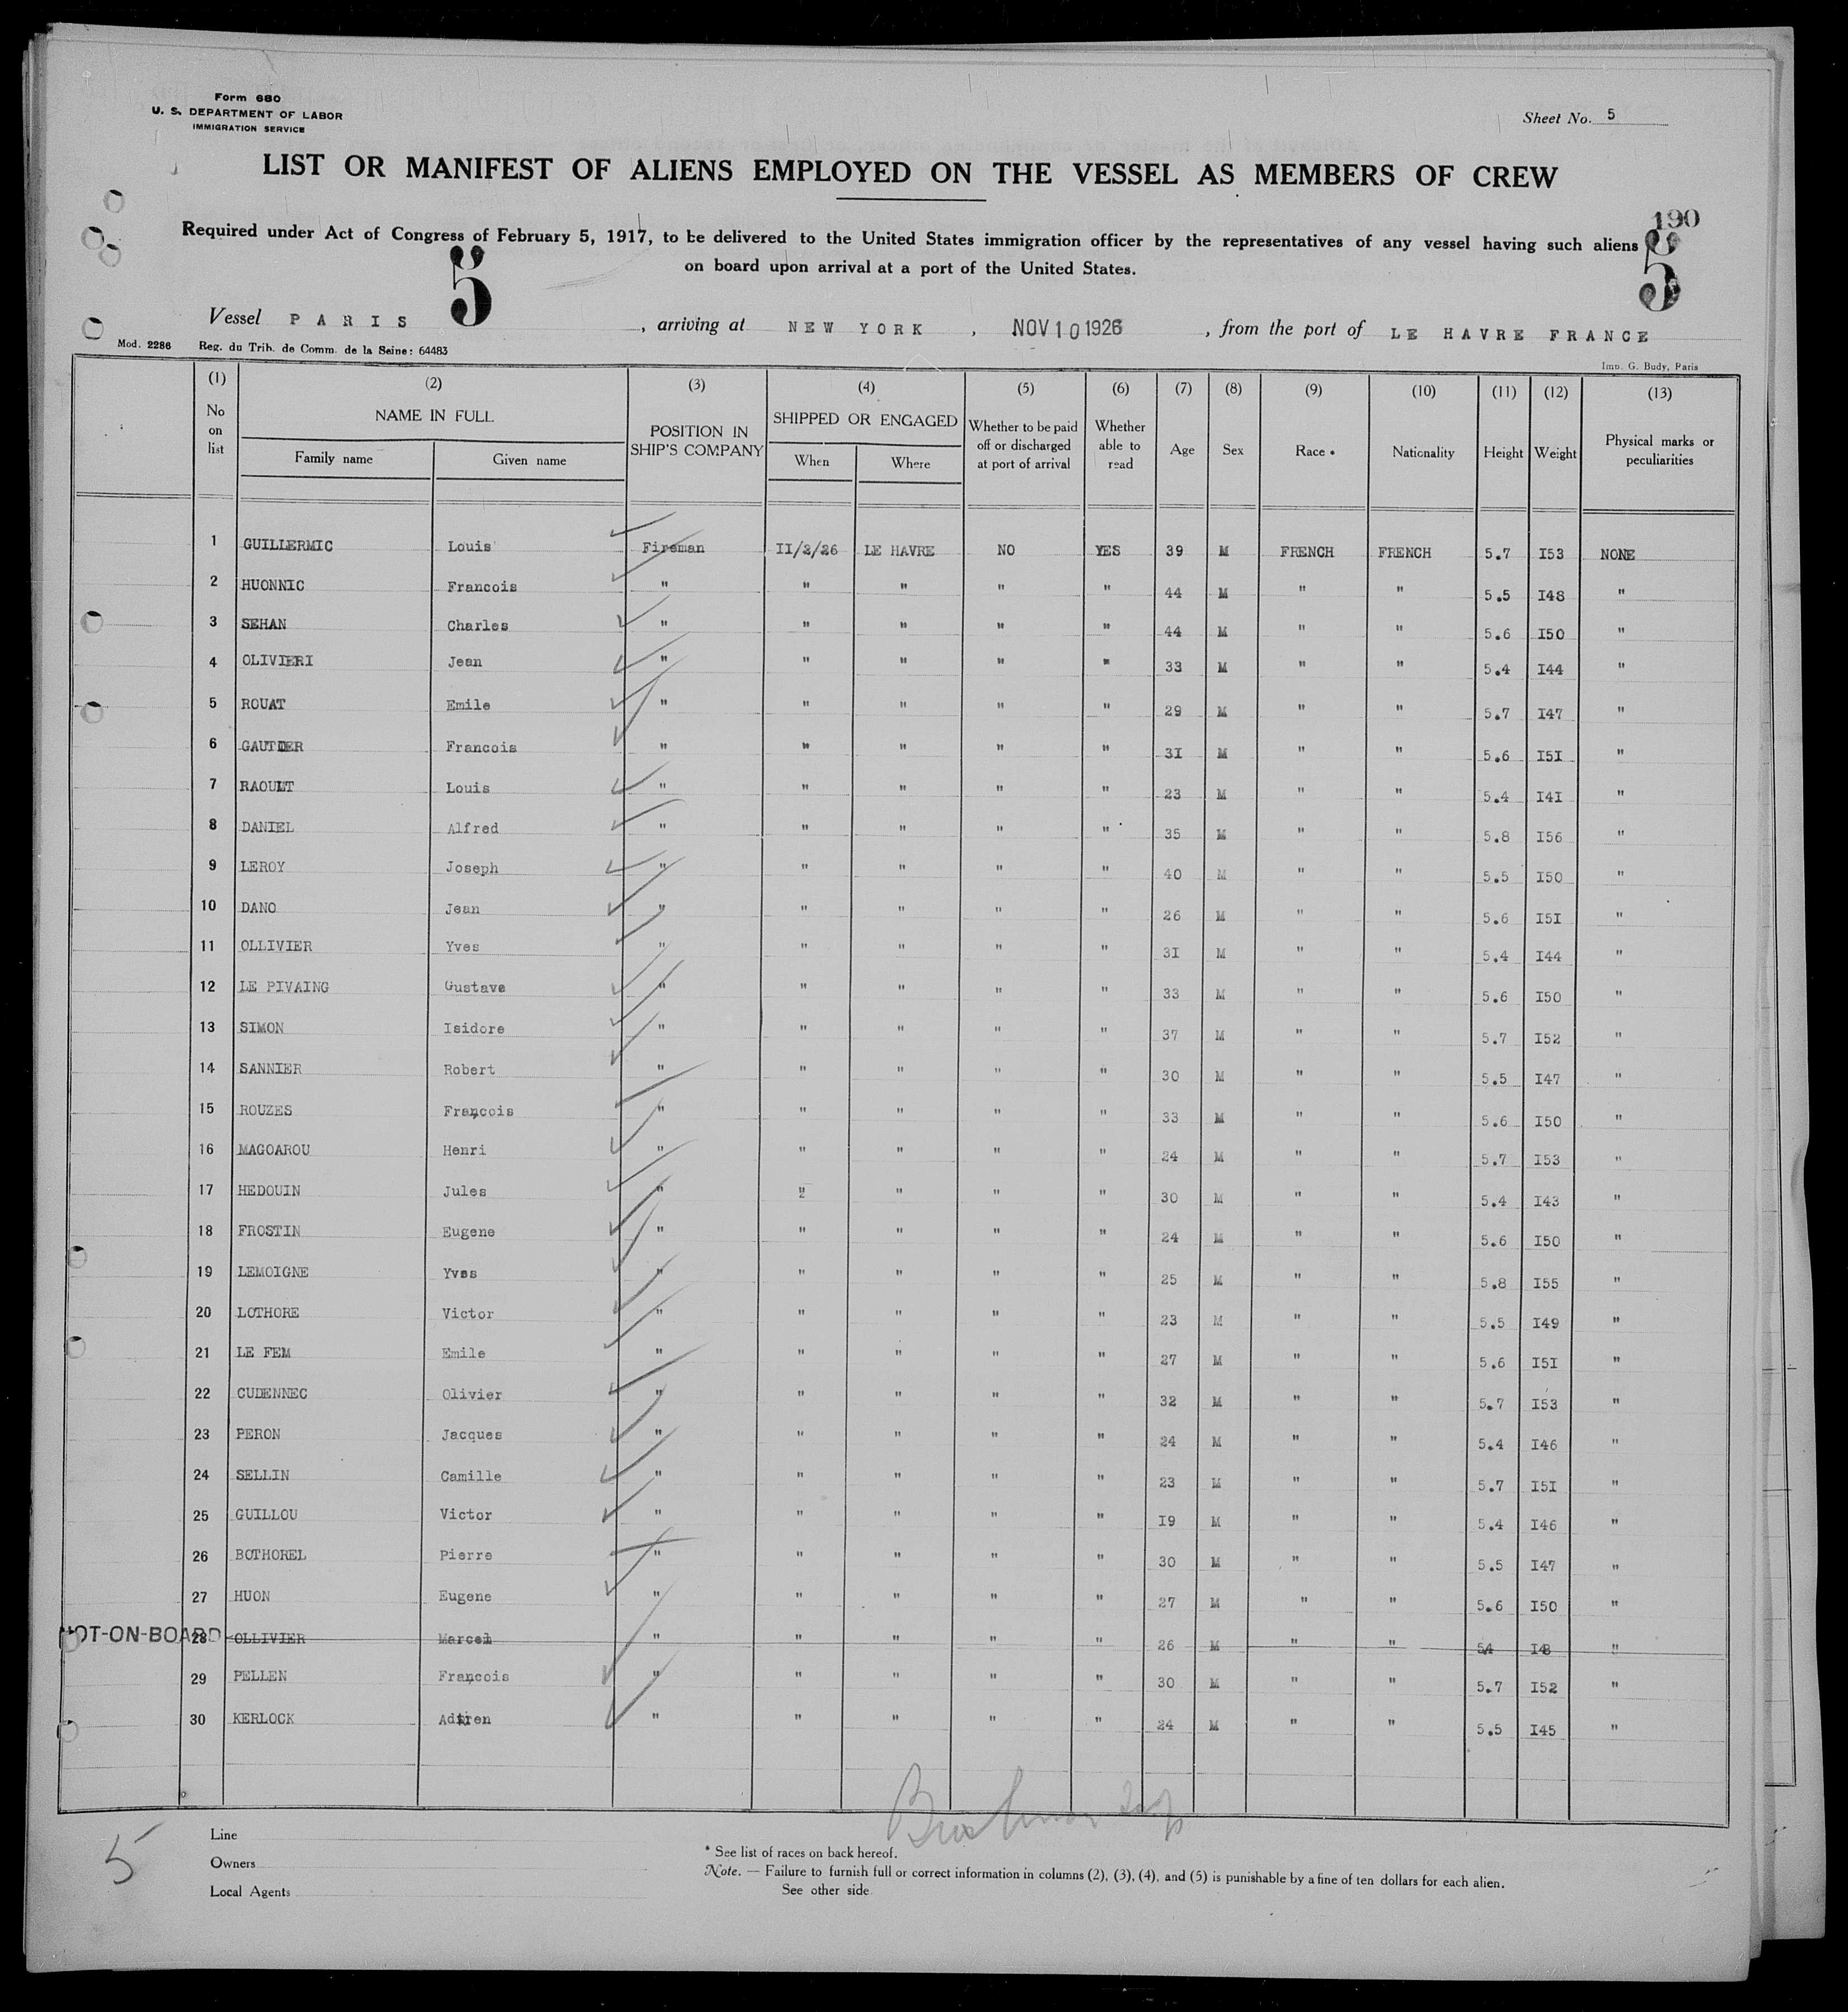 Form 680
U. S. DEPARTMENT OF LABOR
IMMIGRATION SERVICE
Sheet No. 5
LIST OR MANIFEST OF ALIENS EMPLOYED ON THE VESSEL AS MEMBERS OF CREW
190
Required under Act of Congress of February 5, 1917, to be delivered to the United States immigration officer by the representatives of any vessel having such aliens
on board upon arrival at a port of the United States.
5 5
Vessel PARIS, arriving at NEW YORK, NOV 10 1926, from the port of LE HAVRE FRANCE
Mod. 2286 Reg. du Trib. de Comm. de la Seine: 64483
Imp. G. Budy, Paris
(1) (2) (3) (4) (5) (6) (7) (8) (9) (10) (11) (12) (13)
No on list NAME IN FULL Family name Given name POSITION IN SHIP'S COMPANY SHIPPED OR ENGAGED When Where Whether to be paid off or discharged at port of arrival Whether able to read Age Sex Race * Nationality Height Weight Physical marks or peculiarities
1 GUILLERMIC Louis Fireman II/2/26 LE HAVRE NO YES 39 M FRENCH FRENCH 5.7 I53 NONE
2 HUONNIC Francois " " " " " 44 M " " 5.5 I48 "
3 SEHAN Charles " " " " " 44 M " " 5.6 I50 "
4 OLIVIERI Jean " " " " " 33 M " " 5.4 I44 "
5 ROUAT Emile " " " " " 29 M " " 5.7 I47 "
6 GAUTIER Francois " " " " " 3I M " " 5.6 I5I "
7 RAOULT Louis " " " " " 23 M " " 5.4 I4I "
8 DANIEL Alfred " " " " " 35 M " " 5.8 I56 "
9 LEROY Joseph " " " " " 40 M " " 5.5 I50 "
10 DANO Jean " " " " " 26 M " " 5.6 I5I "
11 OLLIVIER Yves " " " " " 3I M " " 5.4 I44 "
12 LE PIVAING Gustave " " " " " 33 M " " 5.6 I50 "
13 SIMON Isidore " " " " " 37 M " " 5.7 I52 "
14 SANNIER Robert " " " " " 30 M " " 5.5 I47 "
15 ROUZES François " " " " " 33 M " " 5.6 I50 "
16 MAGOAROU Henri " " " " " 24 M " " 5.7 I53 "
17 HEDOUIN Jules " " " " " 30 M " " 5.4 I43 "
18 FROSTIN Eugene " " " " " 24 M " " 5.6 I50 "
19 LEMOIGNE Yves " " " " " 25 M " " 5.8 I55 "
20 LOTHORE Victor " " " " " 23 M " " 5.5 I49 "
21 LE FEM Emile " " " " " 27 M " " 5.6 I5I "
22 CUDENNEC Olivier " " " " " 32 M " " 5.7 I53 "
23 PERON Jacques " " " " " 24 M " " 5.4 I46 "
24 SELLIN Camille " " " " " 23 M " " 5.7 I5I "
25 GUILLOU Victor " " " " " I9 M " " 5.4 I46 "
26 BOTHOREL Pierre " " " " " 30 M " " 5.5 I47 "
27 HUON Eugene " " " " " 27 M " " 5.6 I50 "
NOT-ON-BOARD 28 OLLIVIER Marcel " " " " " 26 M " " 54 I48 "
29 PELLEN François " " " " " 30 M " " 5.7 I52 "
30 KERLOCK Adrien " " " " " 24 M " " 5.5 I45 "
5
Line
Owners
Local Agents
* See list of races on back hereof.
Note. — Failure to furnish full or correct information in columns (2), (3), (4), and (5) is punishable by a fine of ten dollars for each alien.
See other side